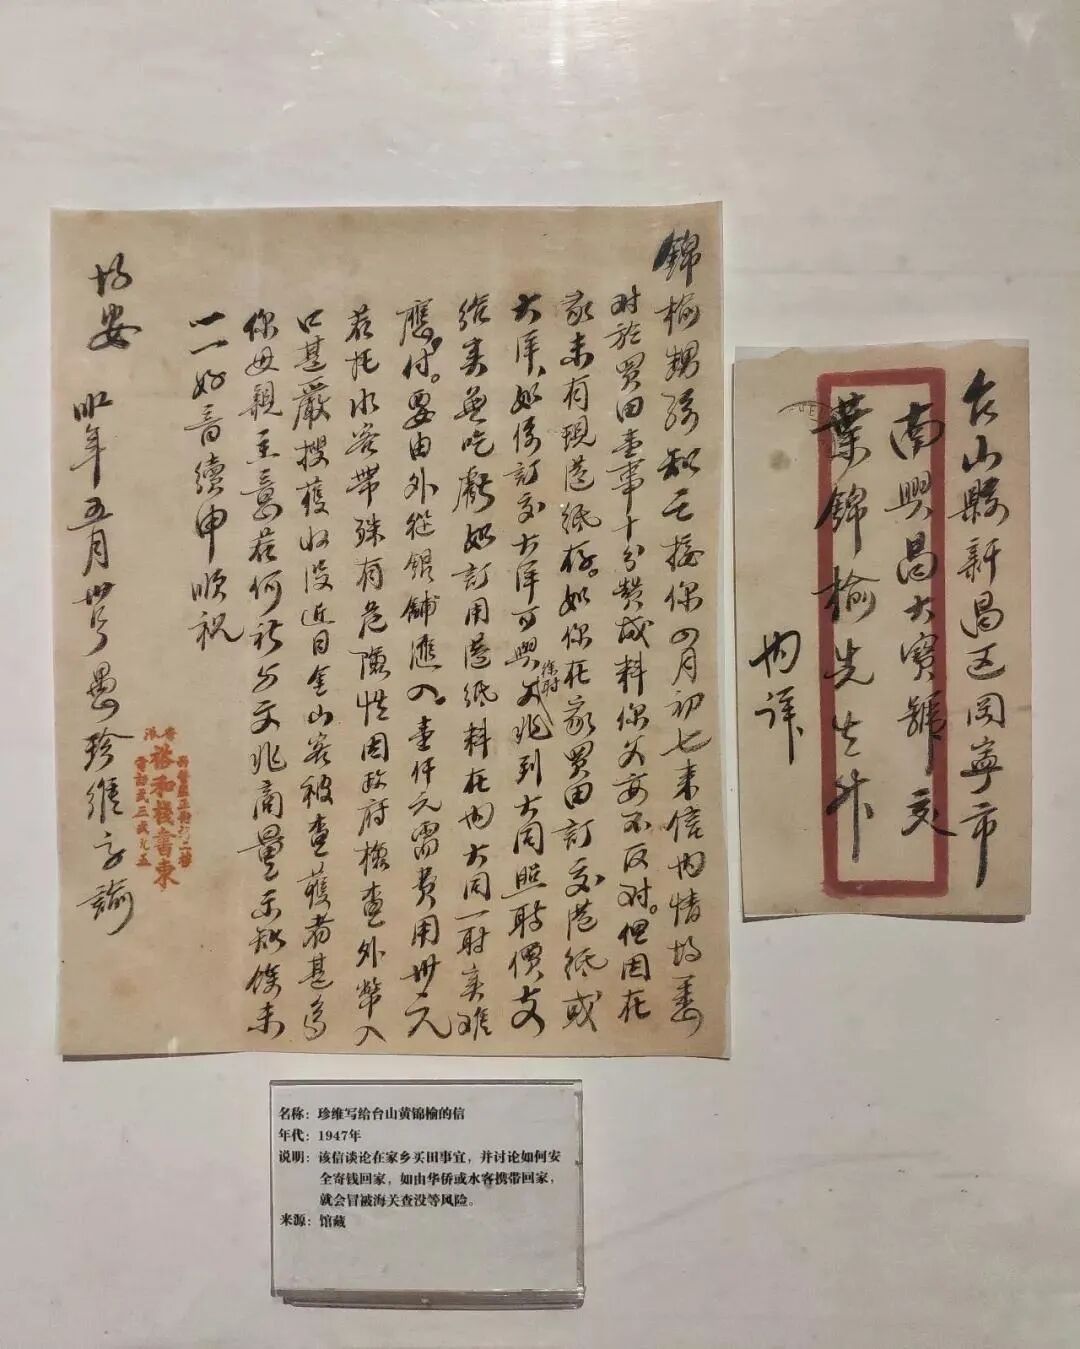 錦榆甥務知之接你四月初七來信內情均悉
對於買田壹事十分贊成料你父母不反對。但因在
家未有現港紙存。如你在家買田訂交港紙或
大洋、如係訂交大洋可與文兆到大同照時價支
給美並吃虧如訂用港紙料在內大同一時矣難
應付。要由外從銀舖滙入。壹仟元需費用卅元
若托水客帶殊有危險性因政府檢查外幣入
口甚嚴搜獲收沒近日金山客被查獲者甚多
你母親主意若何祈与文兆商量示知餘未
一一好音續申順祝
均安
卅六年五月廿号愚珍維手諭
香港
裕和棧書柬
台山縣新昌区岡寧市
南興昌大寶號交
葉錦榆先生升
內詳
名称：珍维写给台山黄锦榆的信
年代：1947年
说明：该信谈论在家乡买田事宜，并讨论如何安
全寄钱回家，如由华侨或水客携带回家，
就会冒被海关查没等风险。
来源：馆藏